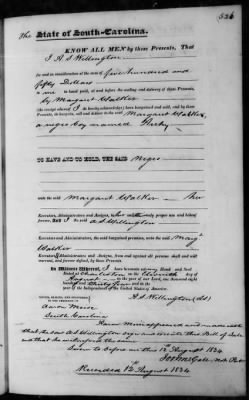 526
The State of South-Carolina.
KNOW ALL MEN by these Presents, That
I A S Willington
for and in consideration of the sum of five hundred and
fifty Dollars
to me in hand paid, at and before the sealing and delivery of these Presents,
by Margaret Walker
(the receipt whereof I do hereby acknowledge) have bargained and sold, and by these
Presents, do bargain, sell and deliver to the said Margaret Walker,
a negro boy named
TO HAVE AND TO HOLD, THE SAID Negro
unto the said Margaret Walker her
Executors, Administrators and Assigns, to her and their only proper use and behoof
forever. And I the said A S Willington
Executors and Administrators, the said bargained premises, unto the said Marg
Walker
Executors, Administrators and Assigns, from and against all persons shall and will warrant,
and forever defend, by these Presents.
In Witness Whereof, I have hereunto set my Hand and Seal
Dated at Charleston on the Eleventh day of
August in the year of our Lord one thousand eight
hundred and thirty four and in the
year of the Independence of the United States of America.
SIGNED, SEALED, AND DELIVERED
IN THE PRESENCE OF
A S Willington (LS)
Aaron
South Carolina
Aaron appeared and made oath
that he saw A S Willington sign and execute this Bill of Sale
and that he witnessed the same
Sworn to before me this 12 August 1834
Not. Pub.
Recorded 12 August 1834